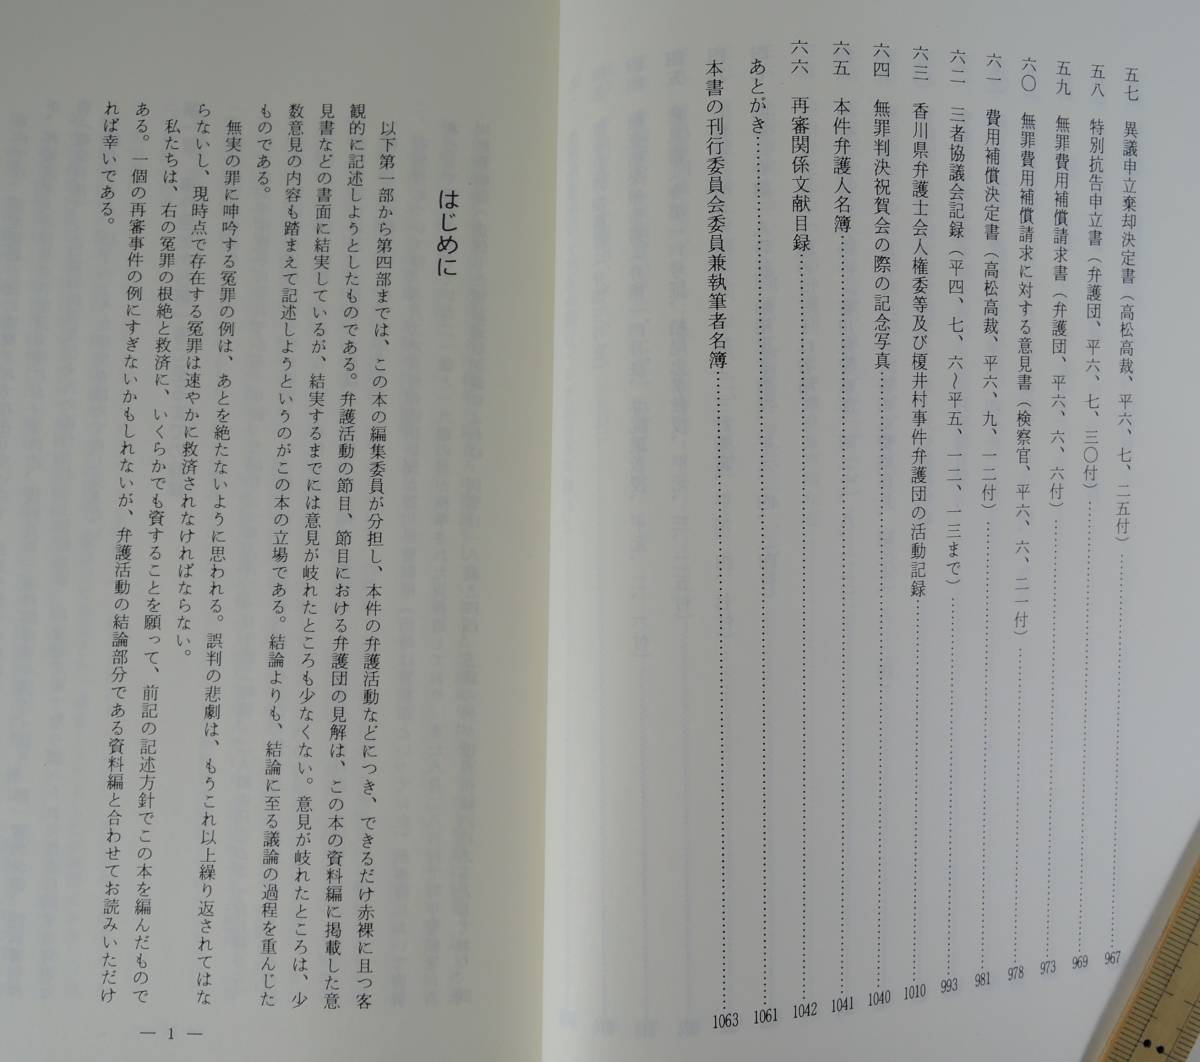 五七　異議申立棄却決定書（高松高裁、平六、七、二五付）……967
五八　特別抗告申立書（弁護団、平六、七、三〇付）……969
五九　無罪費用補償請求書（弁護団、平六、六、六付）……973
六〇　無罪費用補償請求に対する意見書（検察官、平六、六、二一付）……978
六一　費用補償決定書（高松高裁、平六、九、一二付）……981
六二　三者協議会記録（平四、七、六〜平五、一二、一三まで）……993
六三　香川県弁護士会人権委等及び榎井村事件弁護団の活動記録……1010
六四　無罪判決祝賀会の際の記念写真……1040
六五　本件弁護人名簿……1041
六六　再審関係文献目録……1042
あとがき……1061
本書の刊行委員会委員兼執筆者名簿……1063
はじめに
以下第一部から第四部までは、この本の編集委員が分担し、本件の弁護活動などにつき、できるだけ赤裸に且つ客
観的に記述しようとしたものである。弁護活動の節目、節目における弁護団の見解は、この本の資料編に掲載した意
見書などの書面に結実しているが、結実するまでには意見が岐れたところも少なくない。意見が岐れたところは、少
数意見の内容も踏まえて記述しようというのがこの本の立場である。結論よりも、結論に至る議論の過程を重んじた
ものである。
無実の罪に呻吟する冤罪の例は、あとを絶たないように思われる。誤判の悲劇は、もうこれ以上繰り返されてはな
らないし、現時点で存在する冤罪は速やかに救済されなければならない。
私たちは、右の冤罪の根絶と救済に、いくらかでも資することを願って、前記の記述方針でこの本を編んだもので
ある。一個の再審事件の例にすぎないかもしれないが、弁護活動の結論部分である資料編と合わせてお読みいただけ
れば幸いである。
— 1 —